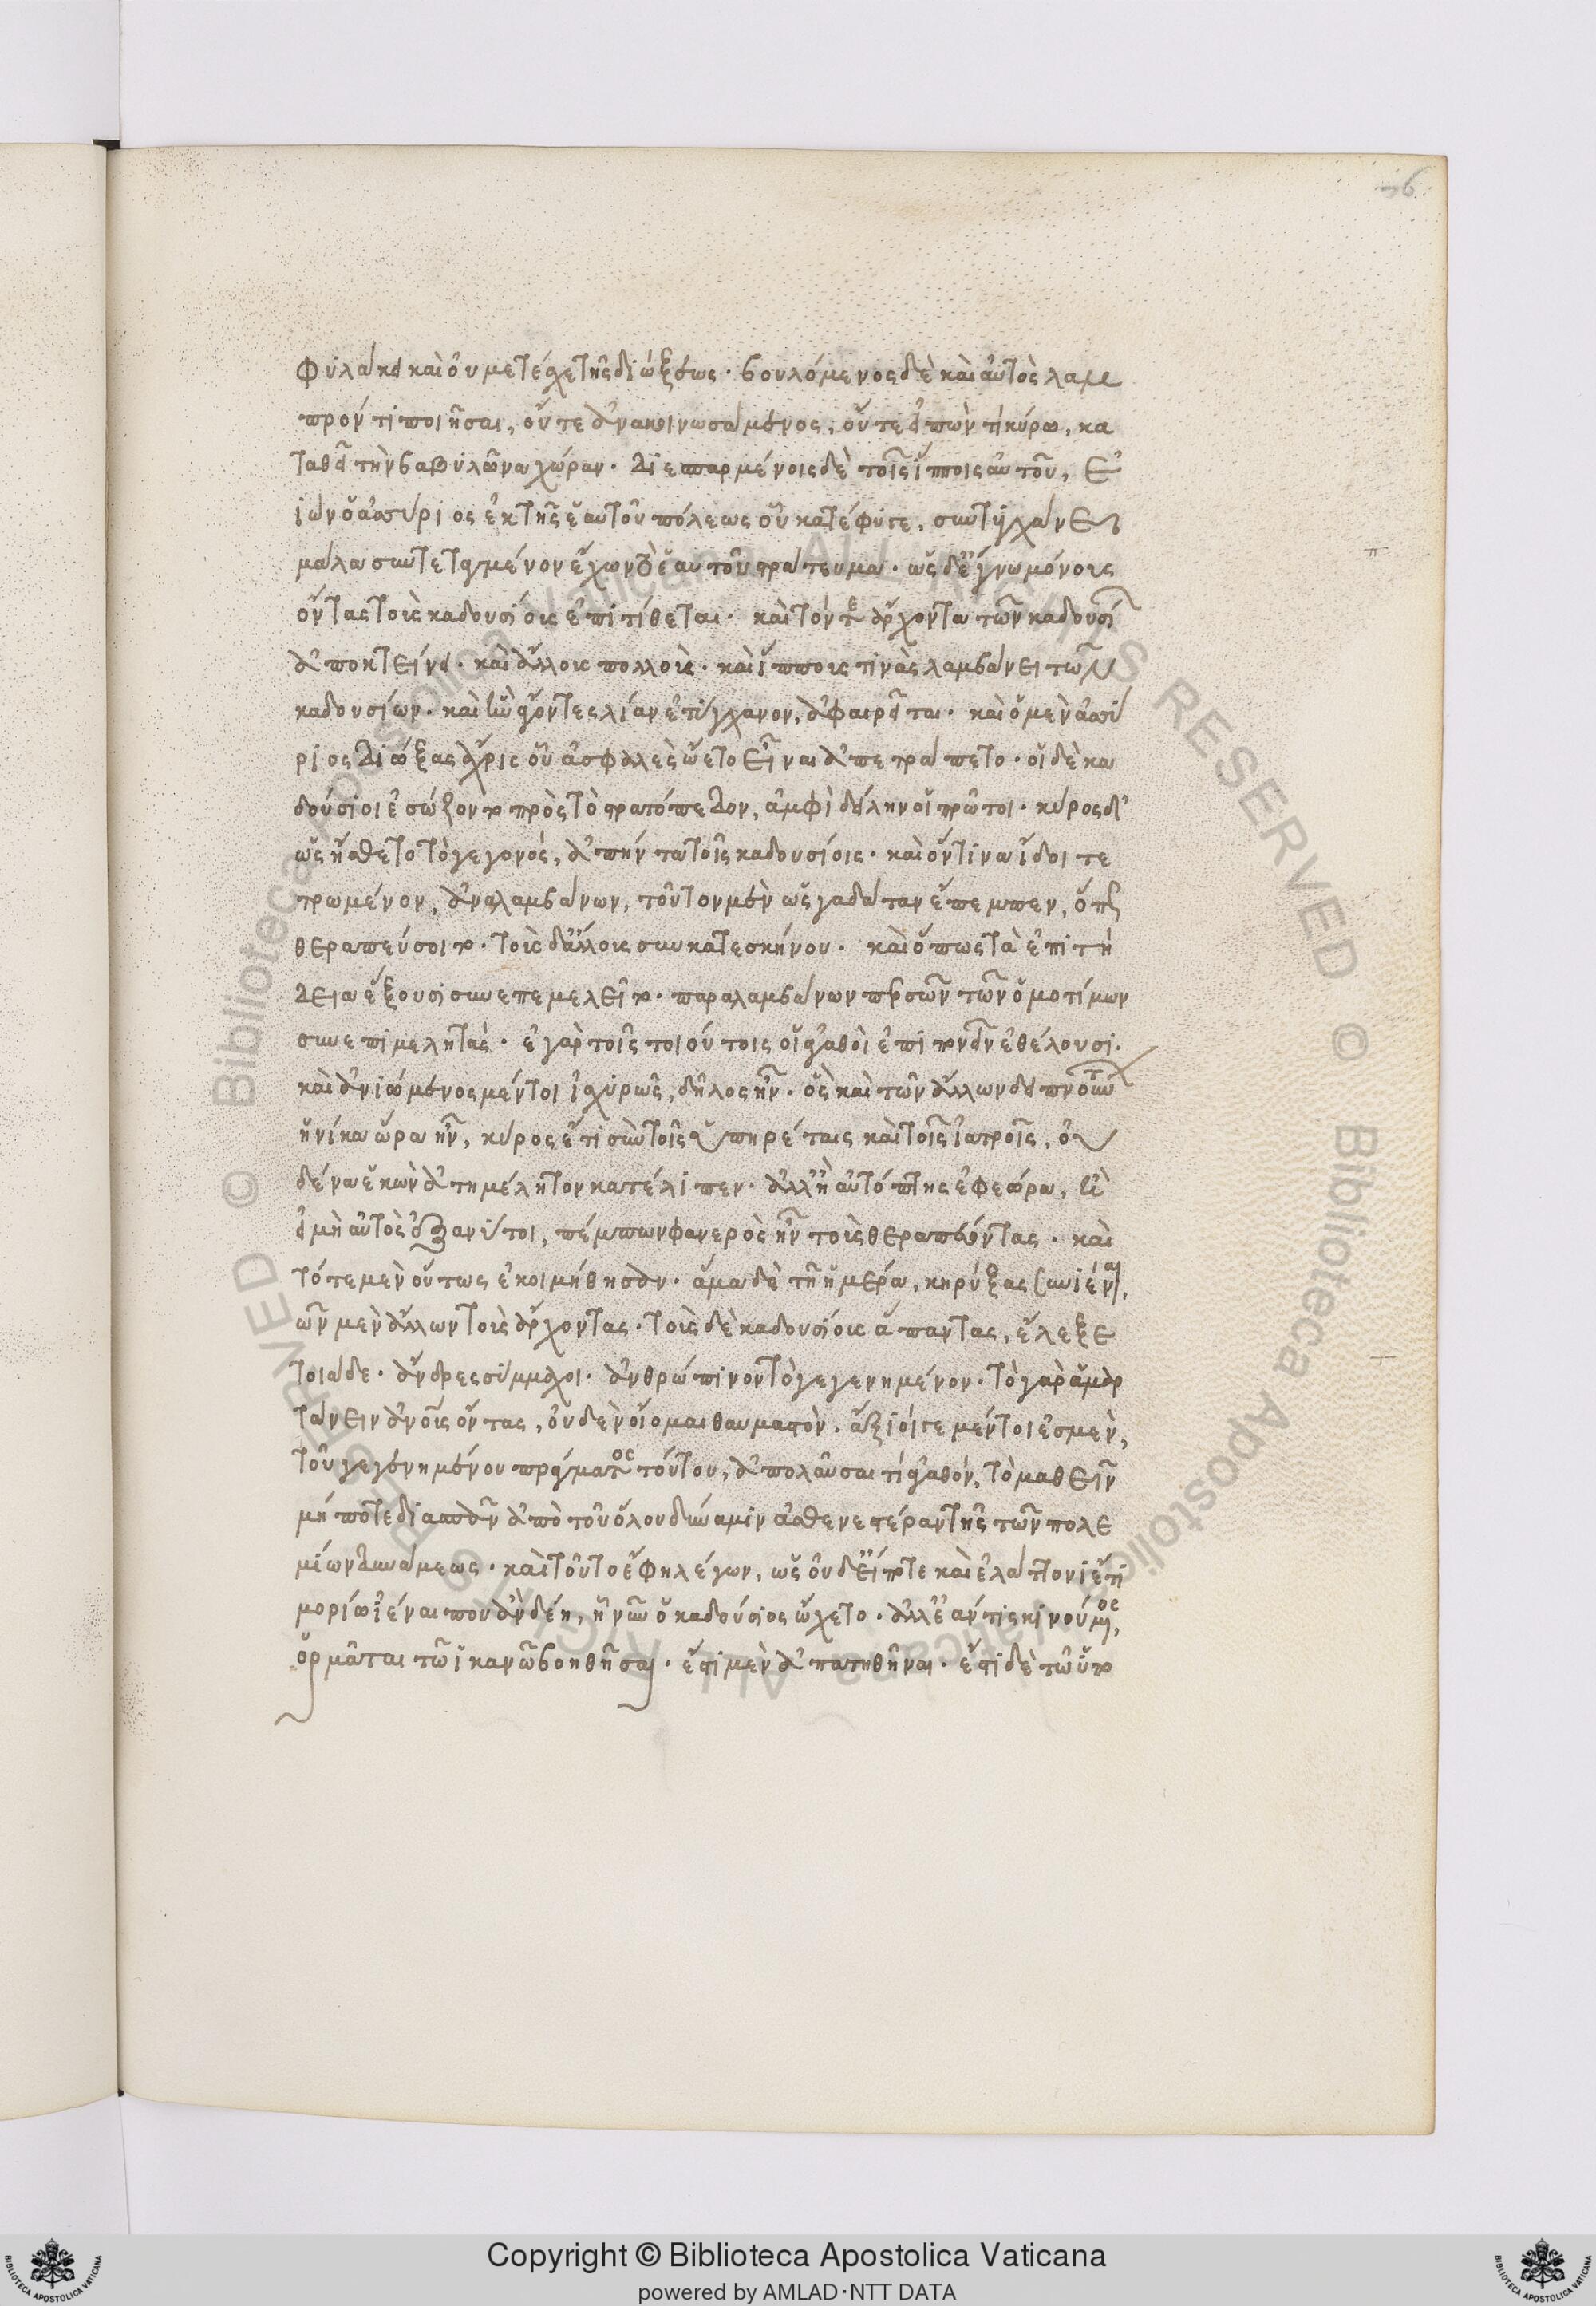 76
φυλακεῖ καὶ οὐ μετέσχε τῆς διώξεως. βουλόμενος δὲ καὶ αὐτὸς λαμ
πρόν τι ποιῆσαι, οὔτε ἀνακοινωσάμενος, οὔτε εἰπὼν τὶ κύρω, κα
ταθεῖ τὴν βαβυλῶνα χώραν. διεσπαρμένοις δὲ τοῖς ἵπποις αὐτοῦ, ἐπ
ιὼν ὁ ἀσσύριος ἐκ τῆς ἑαυτοῦ πόλεως οὗ κατέφυγε, συντυγχάνει
μάλα συντεταγμένον ἔχων τὸ ἑαυτοῦ στράτευμα. ὡς δ' ἔγνω μόνους
ὄντας τοὺς καδουσίους ἐπιτίθεται. καὶ τόν τε ἄρχοντα τῶν καδουσί
ἀποκτείνει. καὶ ἄλλους πολλοὺς. καὶ ἵππους τινὰς λαμβάνει τῶν
καδουσίων. καὶ ἣν ἄγοντες λείαν ἐτύγχανον, ἀφαιρεῖται. καὶ ὁ μὲν ἀσσύ
ριος διώξας ἄχρις οὗ ἀσφαλὲς ᾤετο εἶναι ἀπετράπετο. οἱ δὲ κα
δούσιοι ἐσώζοντο πρὸς τὸ στρατόπεδον, ἀμφὶ δείλην οἱ πρῶτοι. κύρος δ'
ὡς ᾔσθετο τὸ γεγονὸς, ἀπήντα τοῖς καδουσίοις. καὶ ὅντινα ἴδοι τε
τρωμένον, ἀναλαμβάνων, τοῦτον μὲν ὡς γαδάταν ἔπεμπεν, ὅπως
θεραπεύσοιτο. τοὺς δ' ἄλλους συγκατεσκήνου. καὶ ὅπως τὰ ἐπιτή
δεια ἕξουσι συνεπεμελεῖτο. παραλαμβάνων περσῶν τῶν ὁμοτίμων
συνεπιμελητάς. ἐγὰρ τοῖς τοιούτοις οἱ ἀγαθοὶ ἐπιπονεῖν ἐθέλουσι.
καὶ ἀνιώμενος μέντοι ἰσχυρῶς, δῆλος ἦν. ὡς καὶ τῶν ἄλλων δειπνούντων
ἡνίκα ὥρα ἦν, κύρος ἔτι σὺν τοῖς ὑπηρέταις καὶ τοῖς ἰατροῖς, οὐ
δένα ἑκὼν ἀτημέλητον κατέλιπεν. ἀλλ' ἢ αὐτόπτης ἐφεώρα, ἢ
εἰ μὴ αὐτὸς ἐξανύτοι, πέμπων φανερὸς ἦν τοὺς θεραπεύοντας. καὶ
τότε μὲν οὕτως ἐκοιμήθησαν. ἅμα δὲ τῇ ἡμέρα, κηρύξας συνιέναι,
ὧν μὲν ἄλλων τοὺς ἄρχοντας. τοὺς δὲ καδουσίους ἅπαντας, ἔλεξε
τοιάδε. ἄνδρες σύμμαχοι. ἀνθρώπινον τὸ γεγενημένον. τὸ γὰρ ἁμαρ
τάνειν ἀνοῖς ὄντας, οὐδὲν οἴομαι θαυμαστὸν. ἄξιόν γε μέντοι ἐσμεν,
τοῦ γεγενημένου πράγματος τούτου, ἀπολαῦσαι τὶ ἀγαθόν, τὸ μαθεῖν
μή ποτε διασπᾶν ἀπὸ τοῦ ὅλου δύναμιν ἀσθενεστέραν τῆς τῶν πολε
μίων δυνάμεως. καὶ τοῦτο ἔφη λέγων, ὡς οὐ δεῖ ποτε καὶ ἐλάττονι ἔτι
μορίῳ ἰέναι που ἂν δέη, ἢ νῦν ὁ καδούσιος ᾤχετο. ἀλλ' ἐάν τις κινούμενος,
ὁρμᾶται τῶ ἱκανῶ βοηθῆσαι. ἔστι μὲν ἀπατηθῆναι. ἔστι δὲ τῶ ὑπο
Copyright © Biblioteca Apostolica Vaticana
powered by AMLAD·NTT DATA